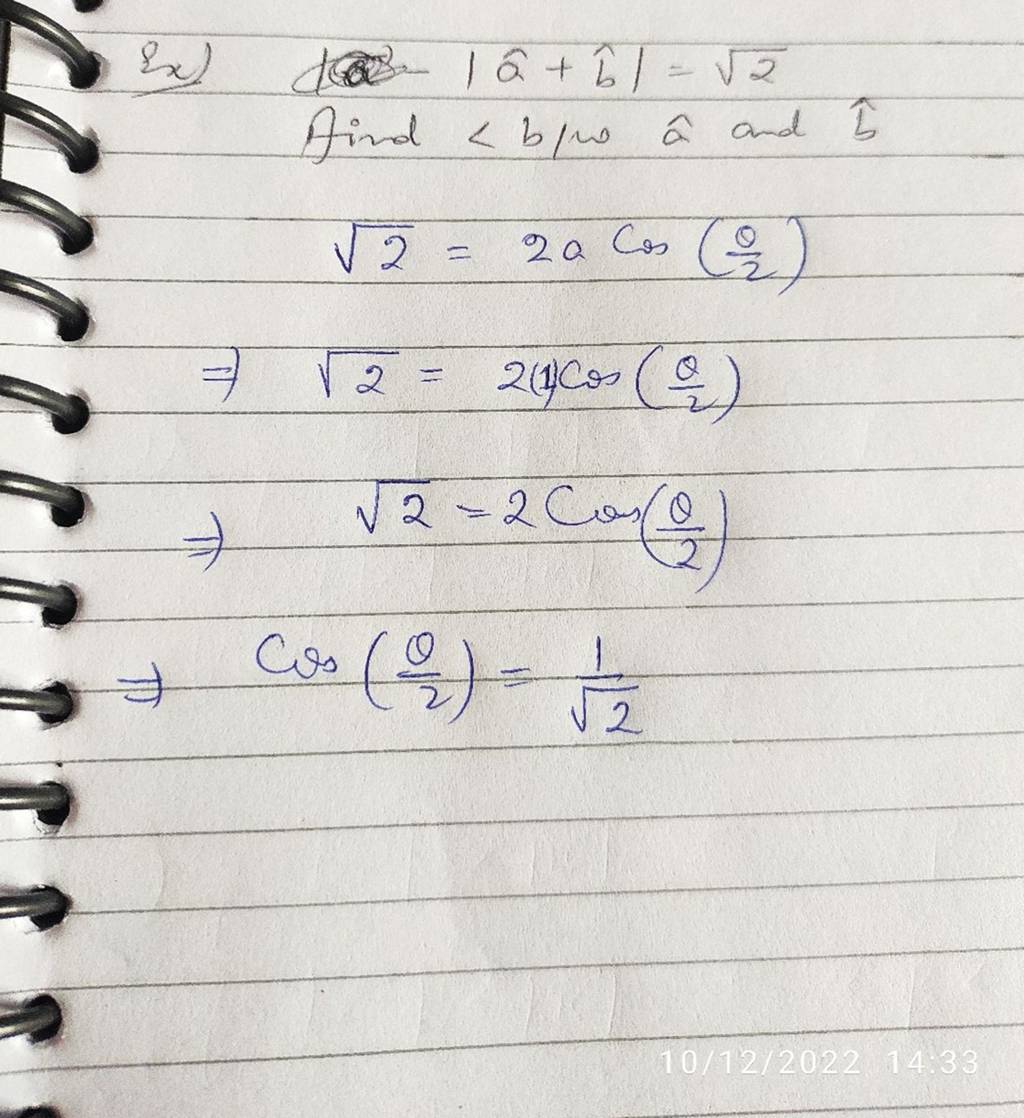 Ex) |â + b̂| = √2
Find < b/w â and b̂
√2 = 2a Cos (θ/2)
⇒ √2 = 2(1)Cos (θ/2)
⇒ √2 = 2 Cos (θ/2)
⇒ Cos (θ/2) = 1/√2
10/12/2022 14:33